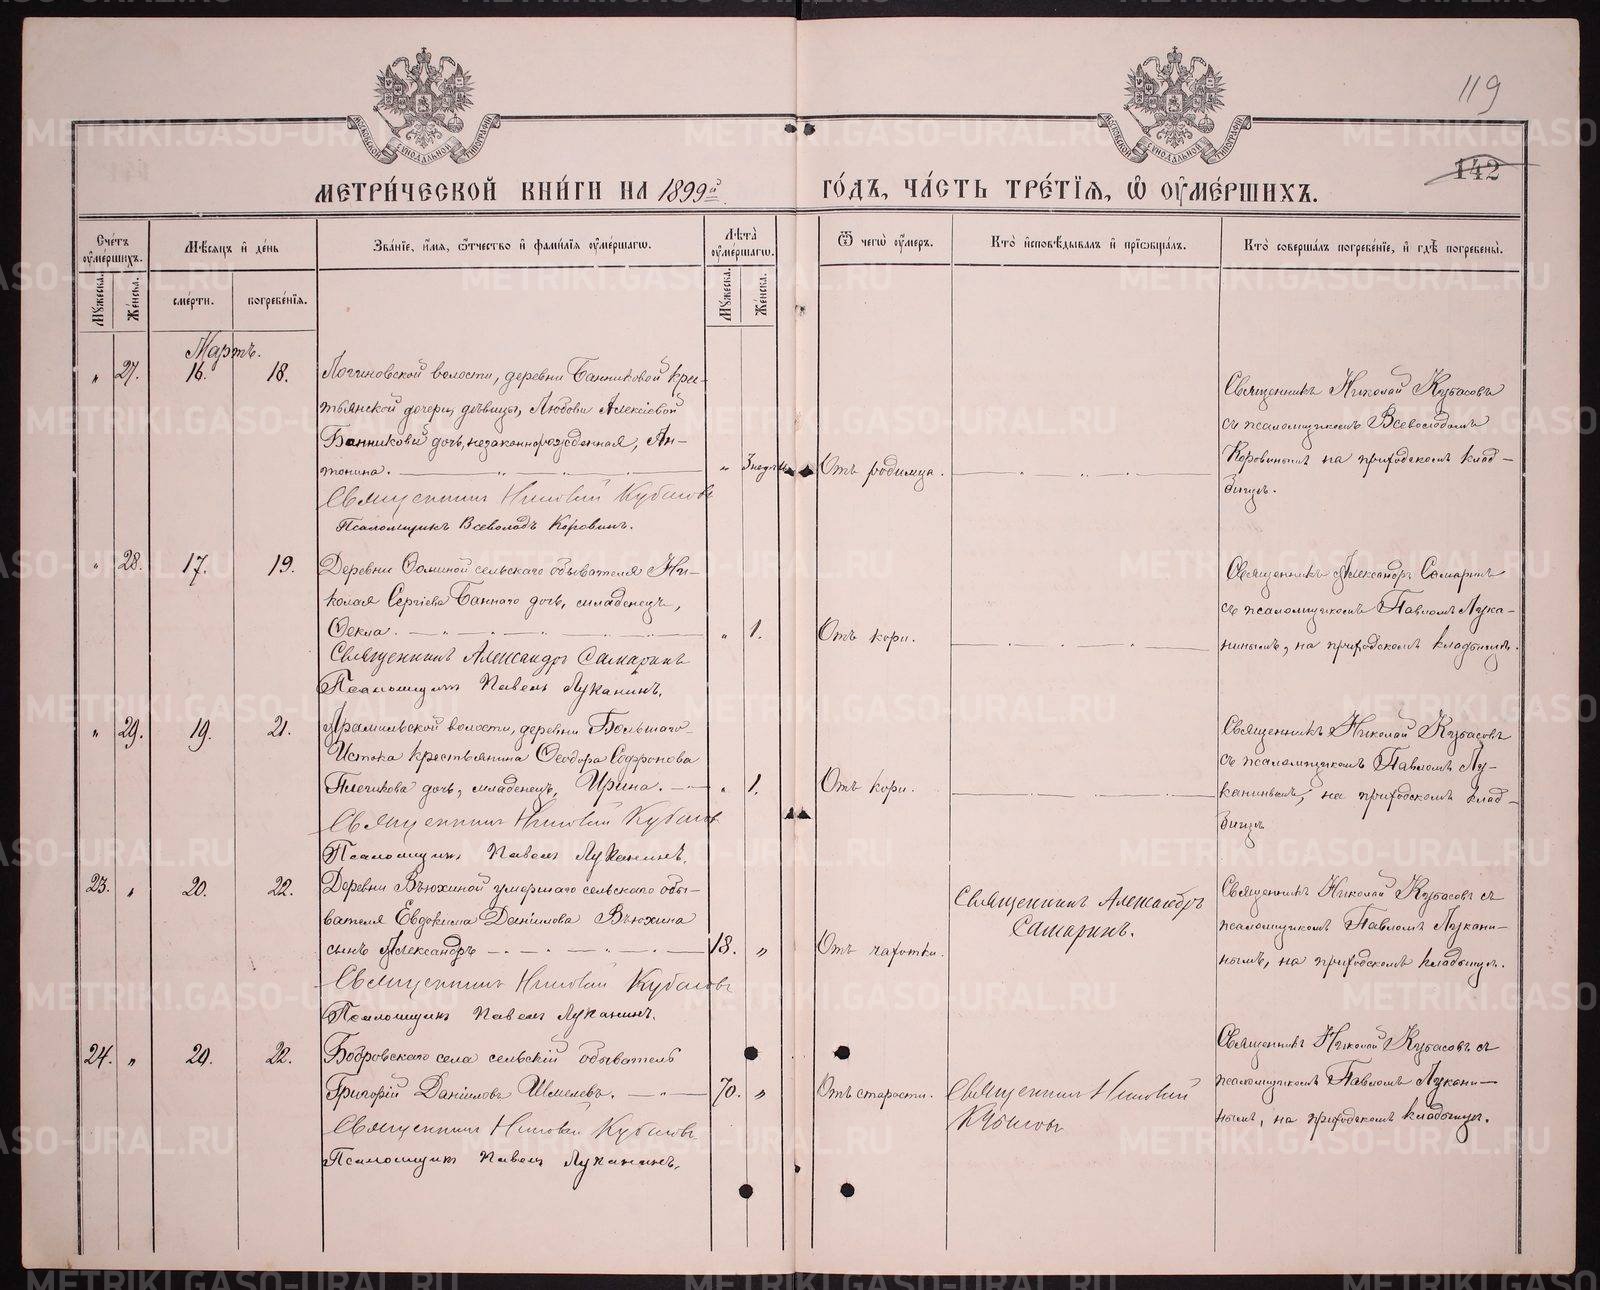 119
142
МОСКОВСКОЙ СѴНОДАЛЬНОЙ ТИПОГРАФІИ
МОСКОВСКОЙ СѴНОДАЛЬНОЙ ТИПОГРАФІИ
МЕТРИ́ЧЕСКОЙ КНИ́ГИ НА 1899й ГО́ДЪ, ЧА́СТЬ ТРЕ́ТІѦ, Ѡ҆ ОУ҆МЕ́РШИХЪ.
Сче́тъ оу҆ме́ршихъ.
Мꙋ́жеска.
Же́нска.
Мѣ́сяцъ и҆ де́нь
сме́рти.
погребе́нїѧ.
Зва́нїе, и҆́мѧ, ѻ҆́тчество и҆ фами́лїѧ оу҆ме́ршагѡ.
Лѣ́та оу҆ме́ршагѡ.
Мꙋ́жеска.
Же́нска.
Ѿ чегѡ̀ оу҆́меръ.
Кто̀ и҆сповѣ́дывалъ и҆ прїѡбща́лъ.
Кто̀ соверша́лъ погребе́нїе, и҆ гдѣ̀ погребены̀.
Мартъ.
„ 27. 16. 18. Логиновской волости, деревни Банниковой кре-
стьянской дочери, дѣвицы, Любови Алексіевой
Банниковой дочь, незаконнорожденная, Ан-
тонина. „ 3 недѣли Отъ родимца.
Священникъ Николай Кубасовъ
Псаломщикъ Всеволодъ Коровинъ.
Священникъ Николай Кубасовъ
съ псаломщикомъ Всеволодомъ
Коровинымъ на приходскомъ клад-
бищѣ.
„ 28. 17. 19. Деревни Ѳоминой сельскаго обывателя Ни-
колая Сергіева Баннаго дочь, младенецъ,
Ѳекла. „ 1. Отъ кори.
Священникъ Александръ Самаринъ
Псаломщикъ Павелъ Луканинъ.
Священникъ Александръ Самаринъ
съ псаломщикомъ Павломъ Лука-
нинымъ, на приходскомъ кладбищѣ.
„ 29. 19. 21. Арамильской волости, деревни Большаго
Истока крестьянина Ѳеодора Софронова
Плечикова дочь, младенецъ, Ирина. „ 1. Отъ кори.
Священникъ Николай Кубасовъ
Псаломщикъ Павелъ Луканинъ.
Священникъ Николай Кубасовъ
съ псаломщикомъ Павломъ Лу-
канинымъ, на приходскомъ клад-
бищѣ
23. „ 20. 22. Деревни Вьюхиной умершаго сельскаго обы-
вателя Евдокима Даніилова Вьюхина
сынъ Александръ 18. „ Отъ чахотки.
Священникъ Николай Кубасовъ
Псаломщикъ Павелъ Луканинъ.
Священникъ Александръ
Самаринъ.
Священникъ Николай Кубасовъ съ
псаломщикомъ Павломъ Лукани-
нымъ, на приходскомъ кладбищѣ.
24. „ 20. 22. Бобровскаго села сельскій обыватель
Григорій Даніиловъ Шмелевъ. 70. „ Отъ старости.
Священникъ Николай Кубасовъ
Псаломщикъ Павелъ Луканинъ.
Священникъ Николай
Кубасовъ
Священникъ Николай Кубасовъ съ
псаломщикомъ Павломъ Лукани-
нымъ, на приходскомъ кладбищѣ.
METRIKI.GASO-URAL.RU